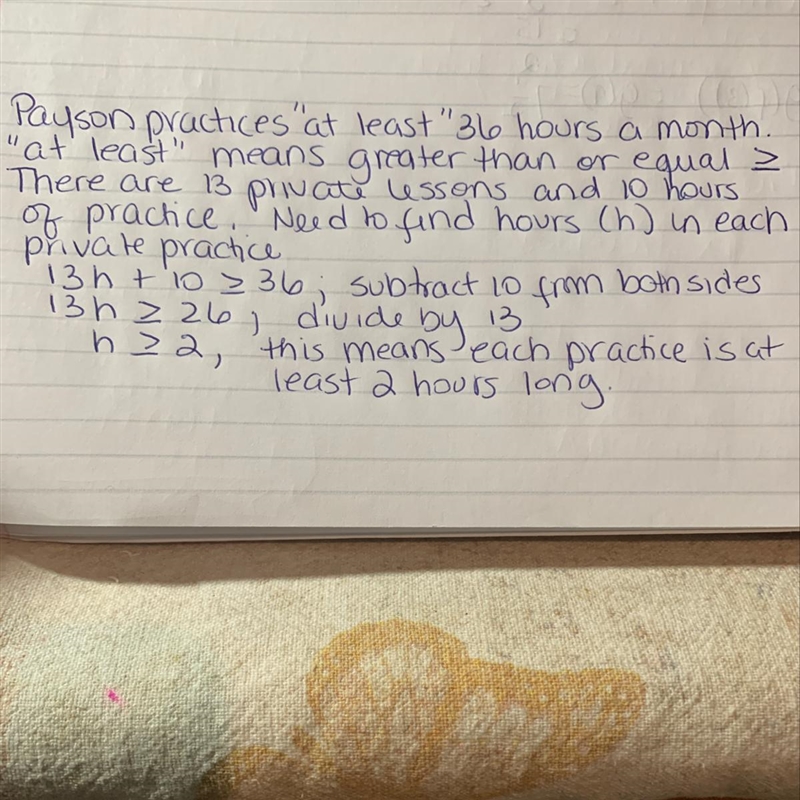 Payson practices "at least" 36 hours a month.
"at least" means greater than or equal ≥
There are 13 private lessons and 10 hours
of practice. Need to find hours (h) in each
private practice
13h + 10 ≥ 36; subtract 10 from both sides
13h ≥ 26; divide by 13
h ≥ 2, this means each practice is at
least 2 hours long.